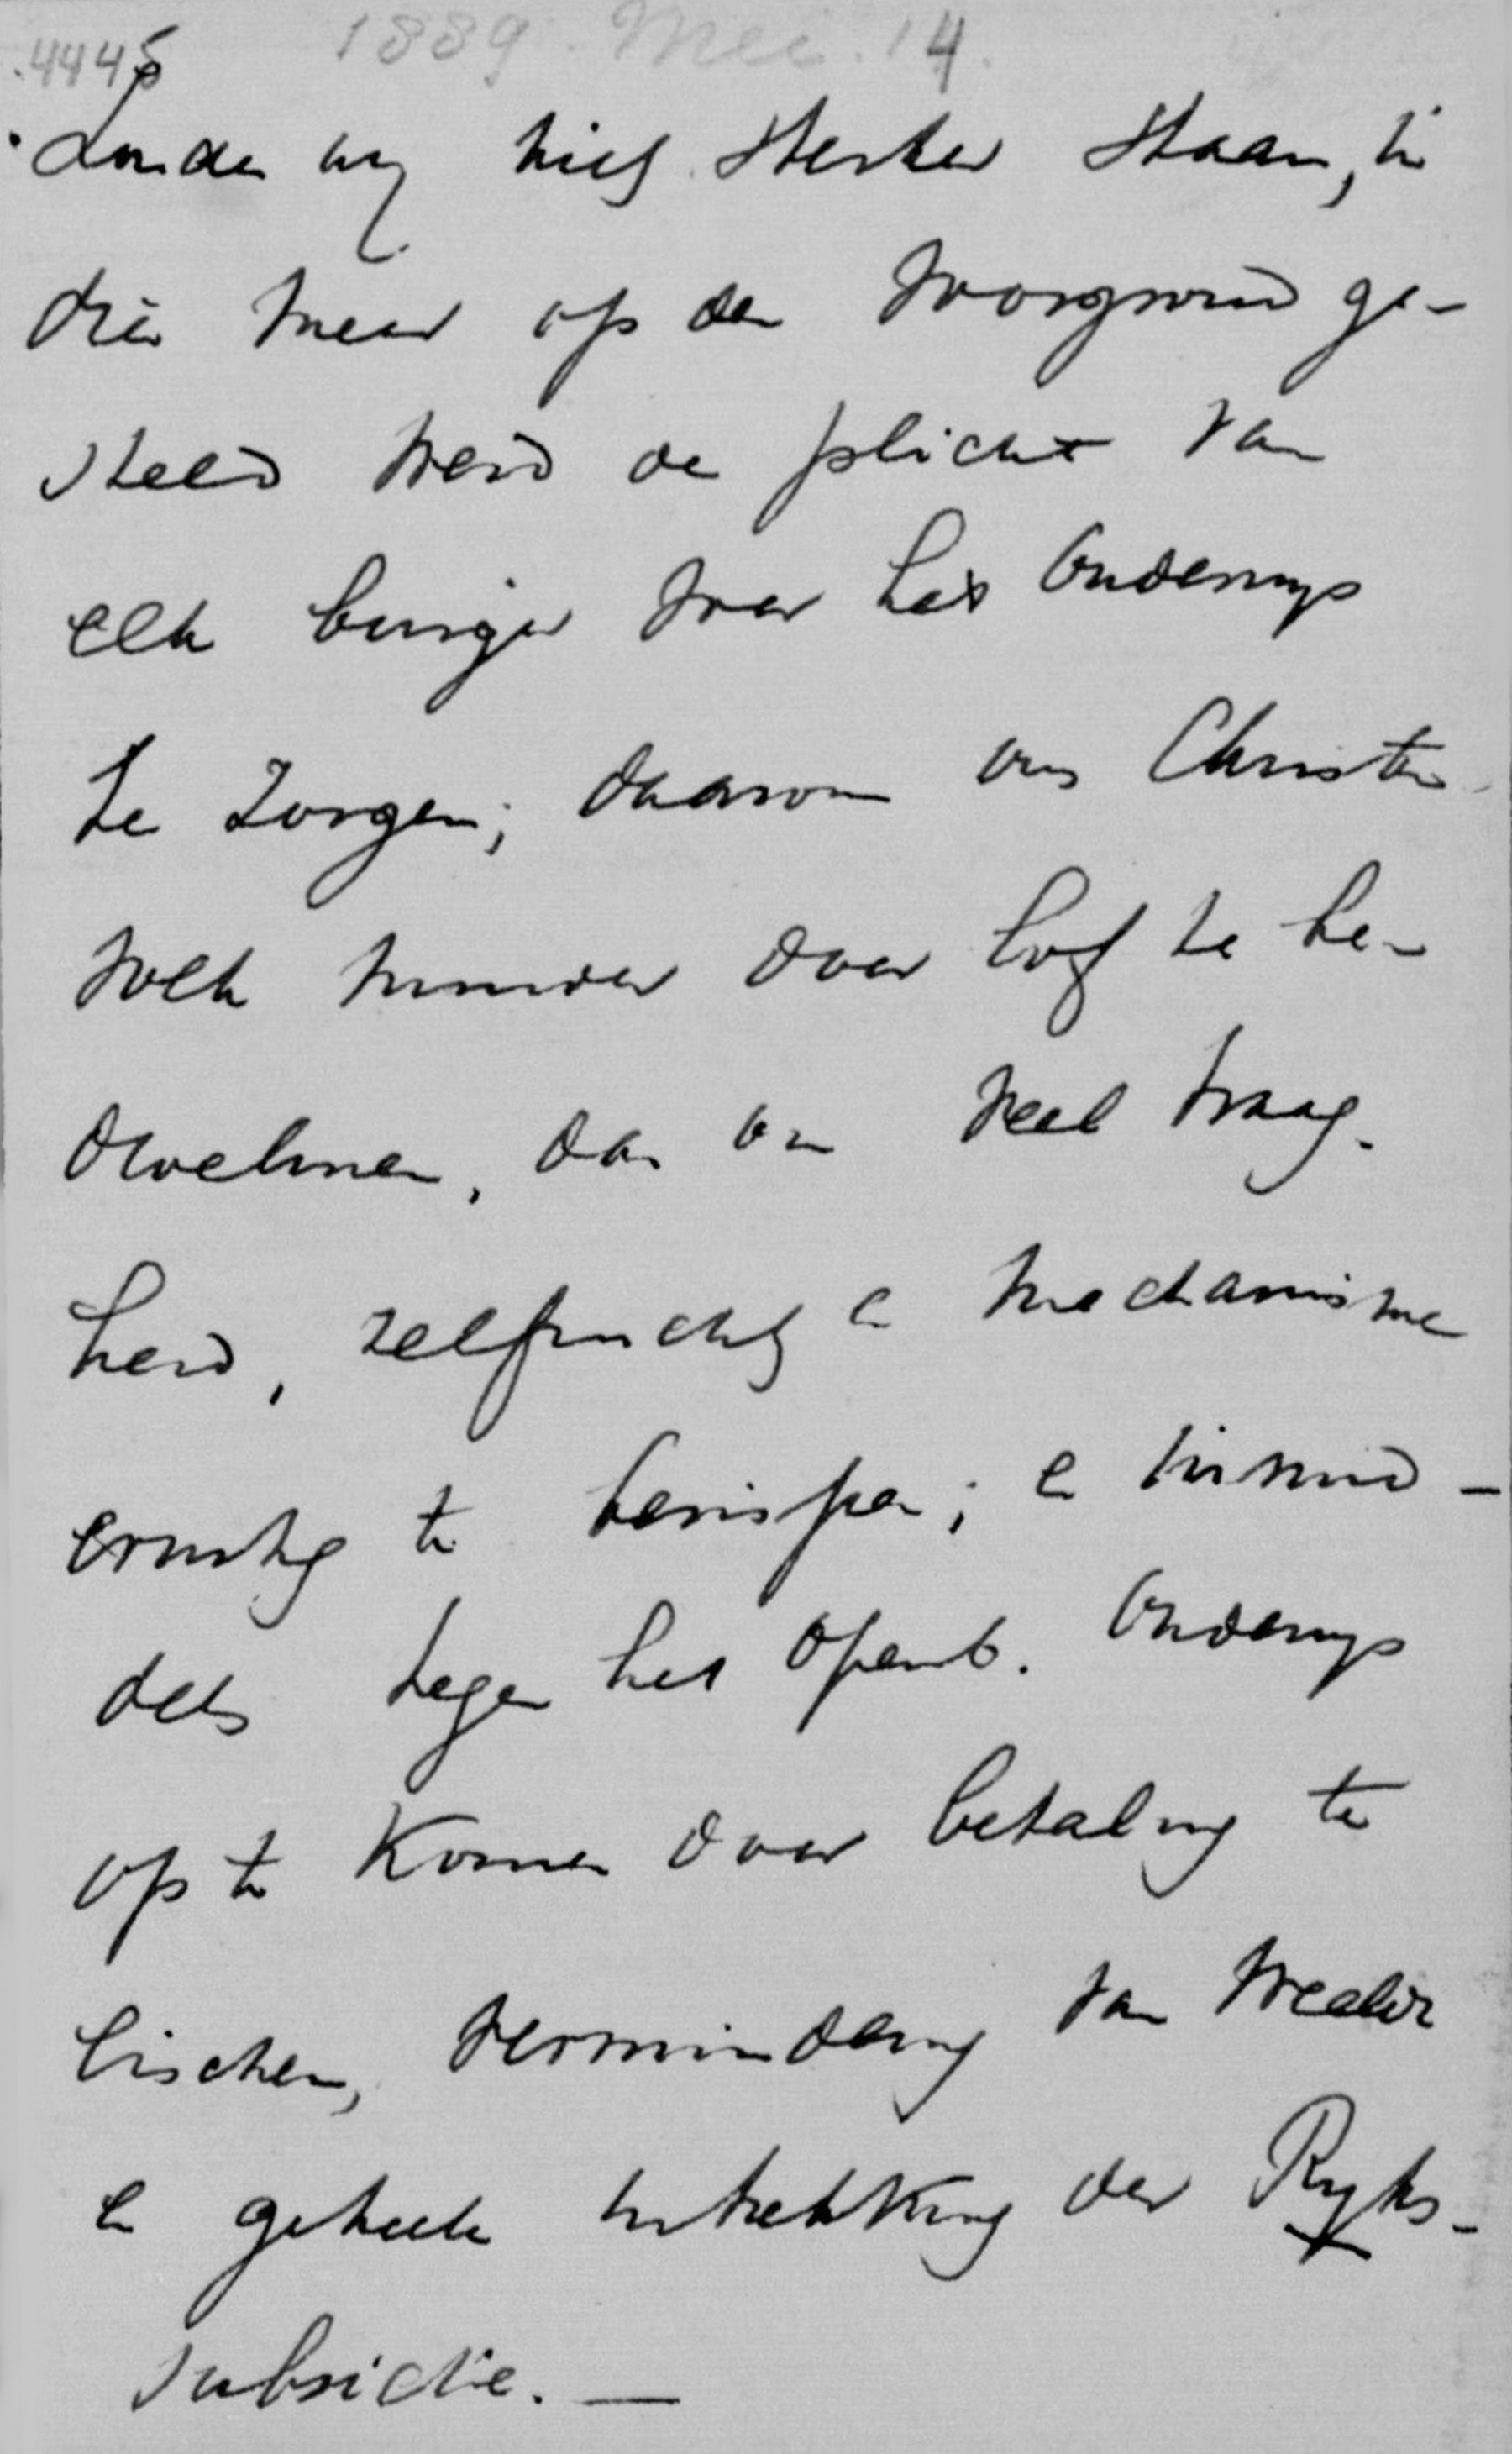 4445 1889. Mei. 14.
Zouden wij niet sterker staan, in
dien meer op den voorgrond ge-
steld werd de plicht van
elk burger voor het Onderwijs
te zorgen; daarom ons Christen
volk minder over lof te be-
dwelmen, dan om veel traag-
heid, zelfzucht en mechanisme
ernstig te berispen; en inmid-
dels tegen het openb. Onderwijs
op te komen door betaling te
eischen, vermindering van weelde
en geheele intrekking der Ryks-
subsidie. —